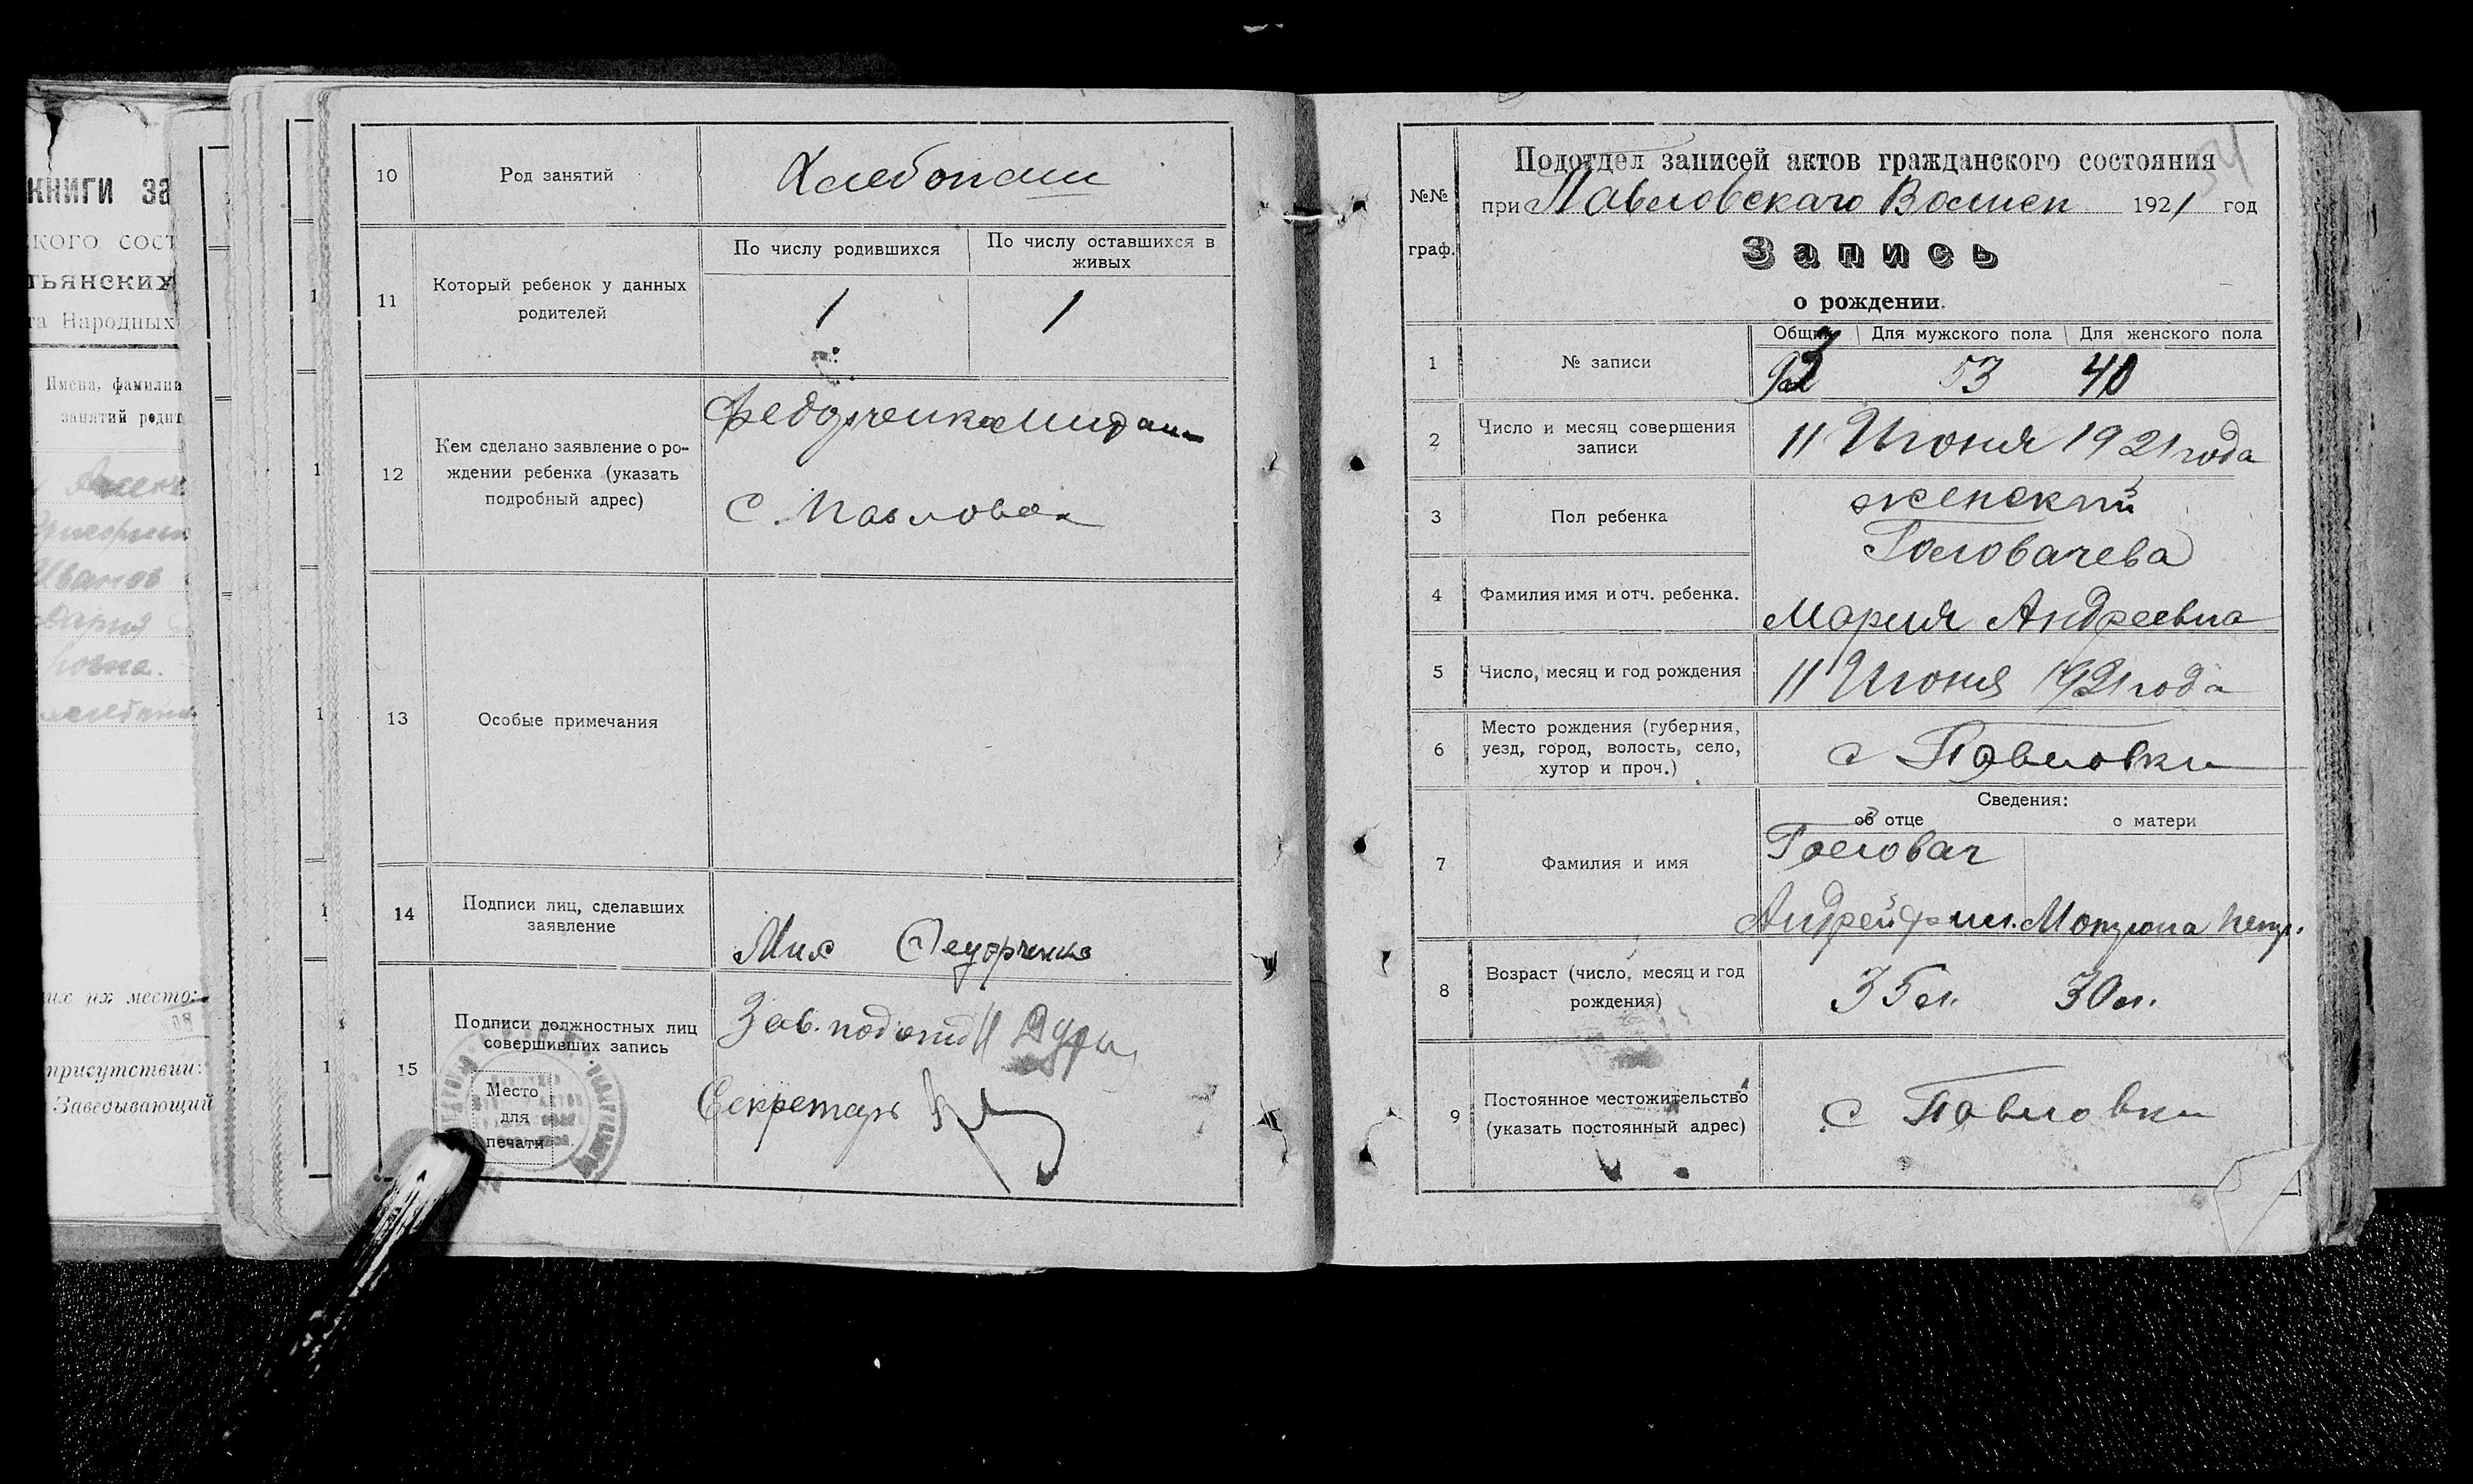 КНИГИ ЗА
КОГО СОСТ
ТЬЯНСКИХ
та Народных
Имена, фамилия
занятий родит
Иванов
Дария
их их место:
присутствии:
Заведывающий
10
Род занятий
Хлебопаш
11
Который ребенок у данных
родителей
По числу родившихся
По числу оставшихся в
живых
1
1
12
Кем сделано заявление о ро-
ждении ребенка (указать
подробный адрес)
Федорченко
с. Павловка
13
Особые примечания
14
Подписи лиц, сделавших
заявление
Мих Федорченко
15
Подписи должностных лиц
совершивших запись
Место
для
печати
Зав. подотд
Секретарь
54
№№
граф.
Подотдел записей актов гражданского состояния
при Павловскаго Волисп 1921 год
Запись
о рождении.
1
№ записи
Общий
Для мужского пола
Для женского пола
53
40
2
Число и месяц совершения
записи
11 Июня 1921 года
3
Пол ребенка
женский
4
Фамилия имя и отч. ребенка.
Головачева
Мария Андреевна
5
Число, месяц и год рождения
11 Июня 1921 года
6
Место рождения (губерния,
уезд, город, волость, село,
хутор и проч.)
с Павловки
Сведения:
об отце
о матери
7
Фамилия и имя
Головач
Андрей
Мотрона Петр.
8
Возраст (число, месяц и год
рождения)
35 л.
30 л.
9
Постоянное местожительство
(указать постоянный адрес)
с Павловки